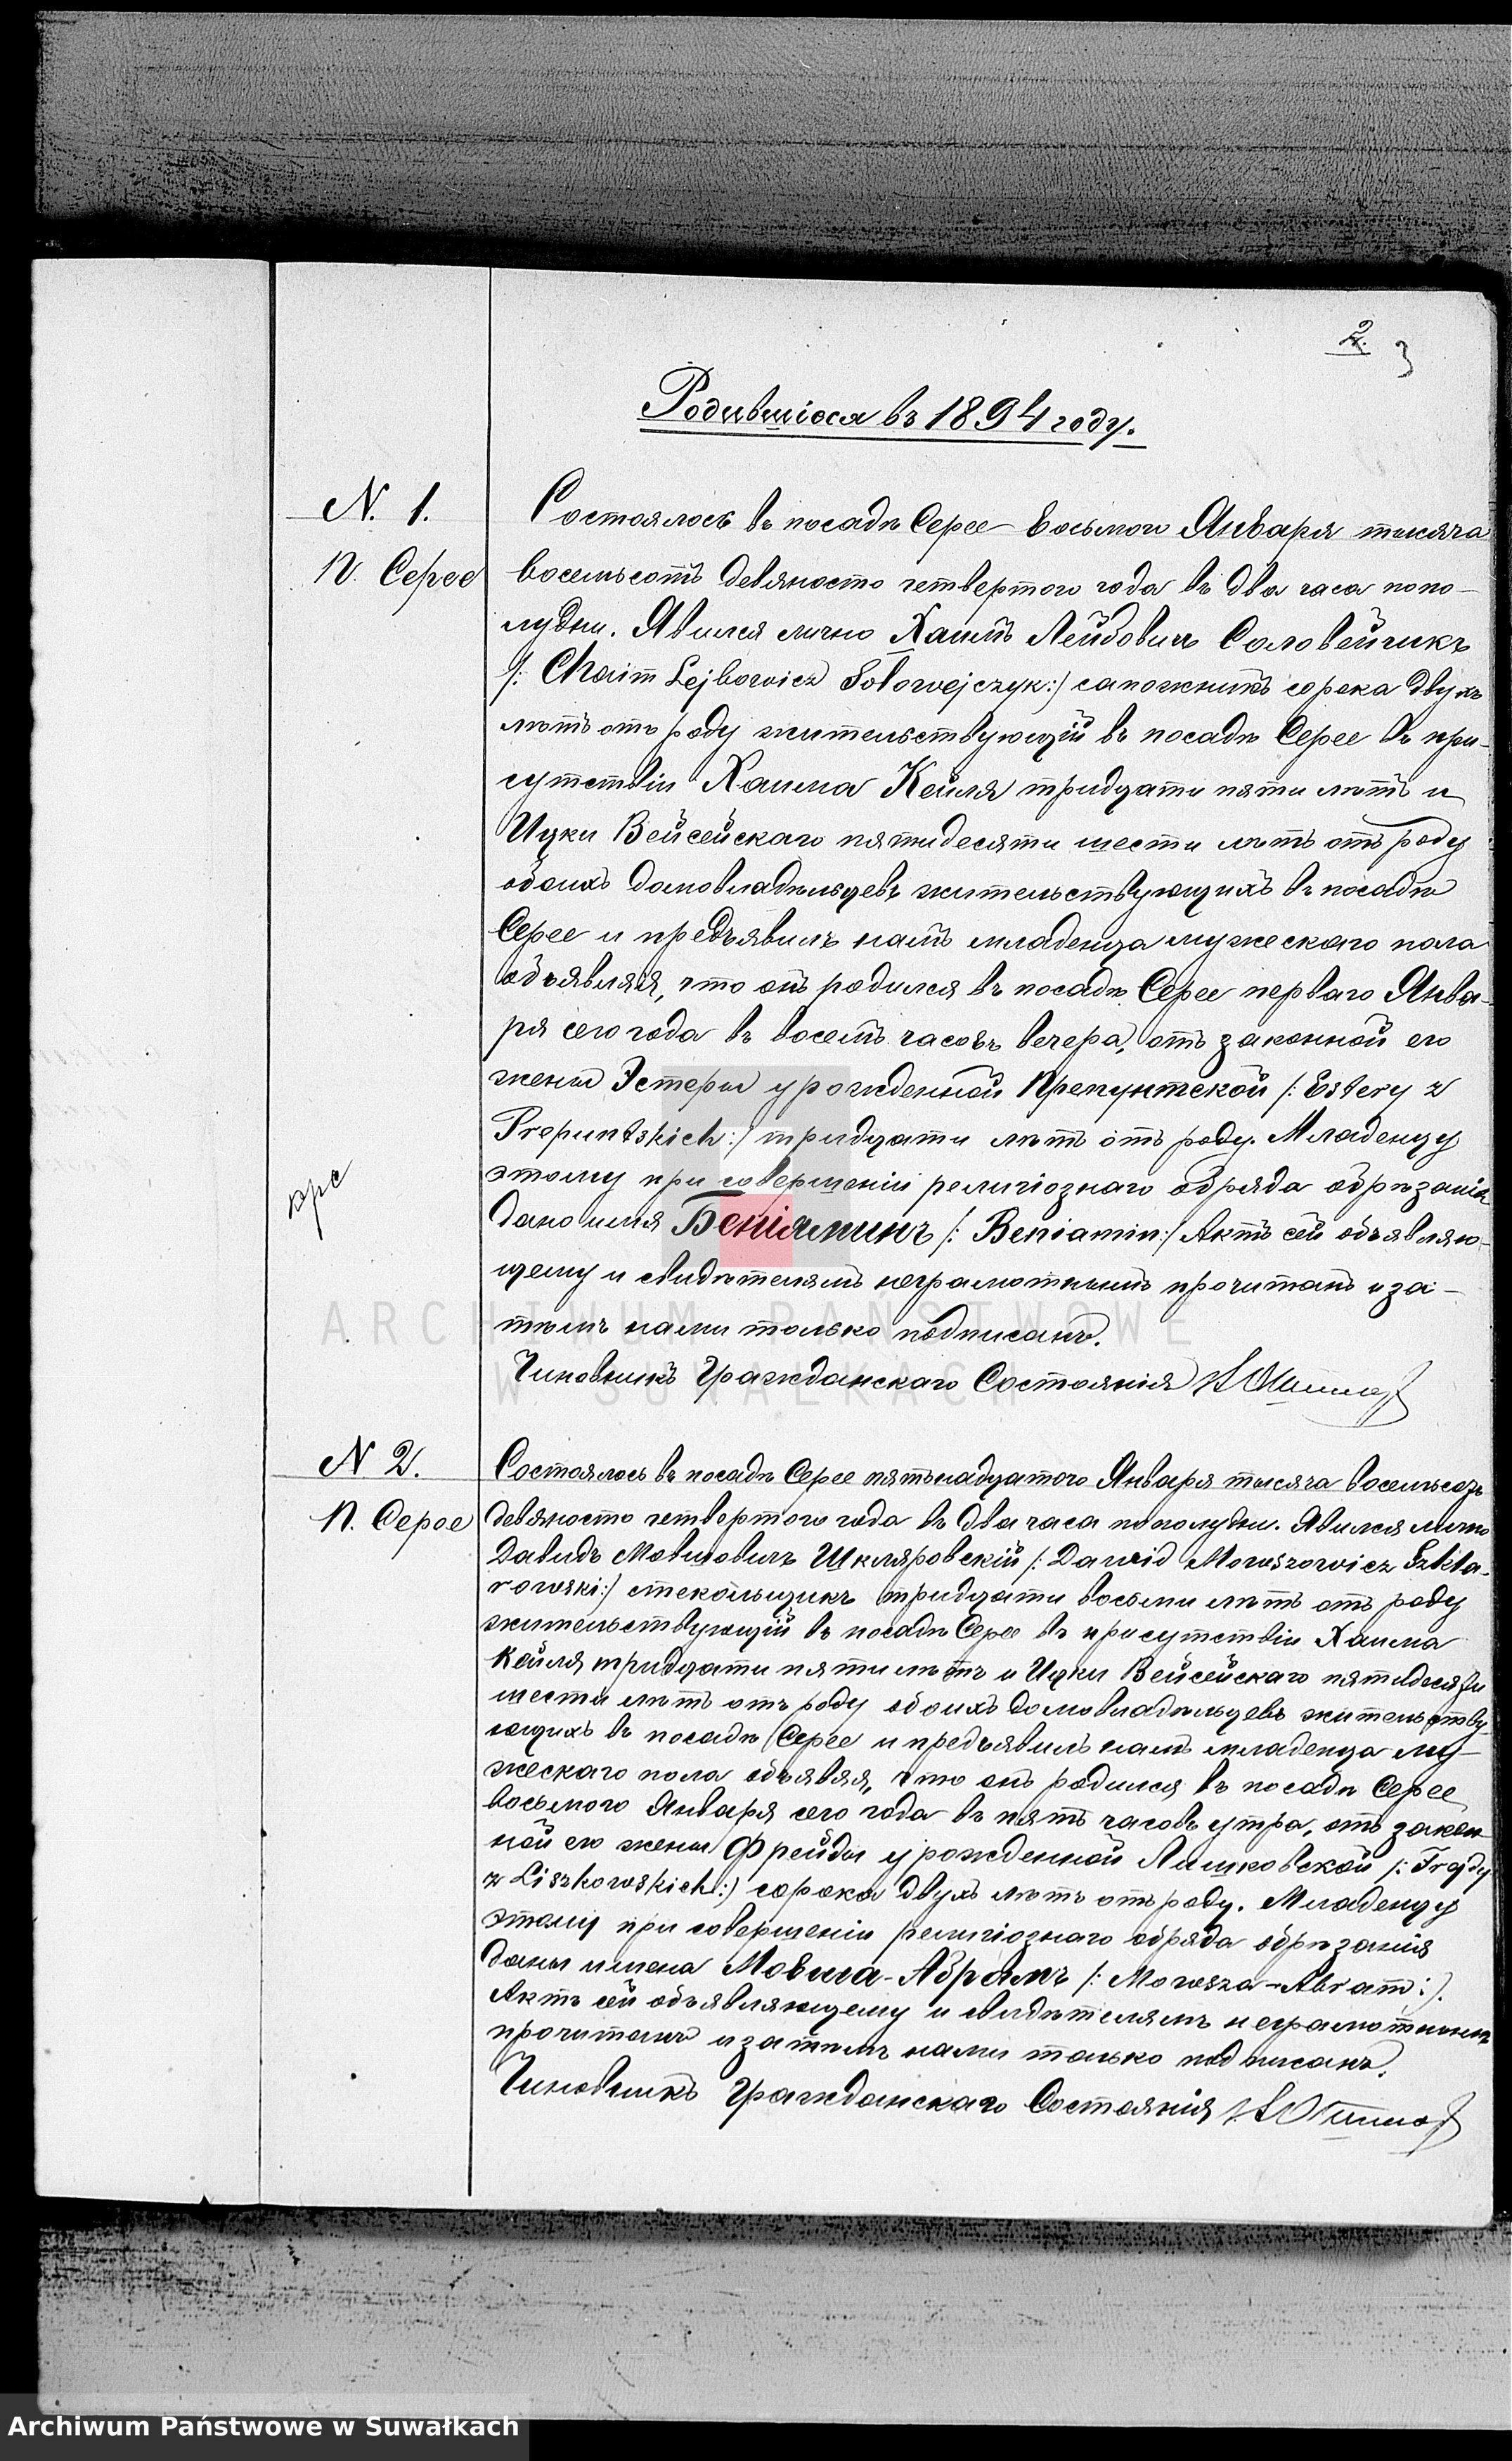 2. 3
Родившіеся въ 1894 году.
N. 1.
П. Серее
Состоялось въ посадѣ Серее восьмого Января тысяча
восемьсотъ девяносто четвертого года въ два часа попо-
лудни. Явился лично Хаимъ Лейбовичъ Соловейчикъ
/: Chaim Lejbowicz Sołowejczyk :/ сапожникъ сорока двухъ
лѣтъ отъ роду жительствующій въ посадѣ Серее въ при-
сутствіи Хаима Кейля тридцати пяти лѣтъ и
Ицки Вейсейскаго пятидесяти шести лѣтъ отъ роду
обоихъ домовладѣльцевъ жительствующихъ въ посадѣ
Серее и предъявилъ намъ младенца мужескаго пола
объявляя, что онъ родился въ посадѣ Серее перваго Янва-
ря сего года въ восемь часовъ вечера, отъ законной его
жены Эстеры урожденной Препунтской /: Estery z
Prepuntskich :/ тридцати лѣтъ отъ роду. Младенцу
этому при совершеніи религіознаго обряда обрѣзанія
дано имя Беніяминъ /: Beniamin :/ Актъ сей объявляю-
щему и свидѣтелямъ неграмотнымъ прочитанъ и за-
тѣмъ нами только подписанъ.
Чиновникъ Гражданскаго Состоянія
N 2.
П. Серее
Состоялось въ посадѣ Серее пятьнадцатого Января тысяча восемьсотъ
девяносто четвертого года въ два часа пополудни. Явился лично
Давидъ Мовшовичъ Шкляровскій /: Dawid Mowszowicz Szkla-
rowski :/ стекольщикъ тридцати восьми лѣтъ отъ роду
жительствующій въ посадѣ Серее въ присутствіи Хаима
Кейля тридцати пяти лѣтъ и Ицки Вейсейскаго пятидесяти
шести лѣтъ отъ роду обоихъ домовладѣльцевъ жительству-
ющихъ въ посадѣ Серее и предъявилъ намъ младенца му-
жескаго пола объявяя, что онъ родился въ посадѣ Серее
восьмого Января сего года въ пять часовъ утра, отъ закон-
ной его жены Фрейды урожденной Лишковской /: Frejdy
z Liszkowskich :/ сорока двухъ лѣтъ отъ роду. Младенцу
этому при совершеніи религіознаго обряда обрѣзанія
даны имена Мовша-Абрамъ /: Mowsza-Abram :/.
Актъ сей объявляющему и свидѣтелямъ неграмотнымъ
прочитанъ и затѣмъ нами только подписанъ.
Чиновникъ Гражданскаго Состоянія
ARCHIWUM PAŃSTWOWE
W SUWAŁKACH
Archiwum Państwowe w Suwałkach